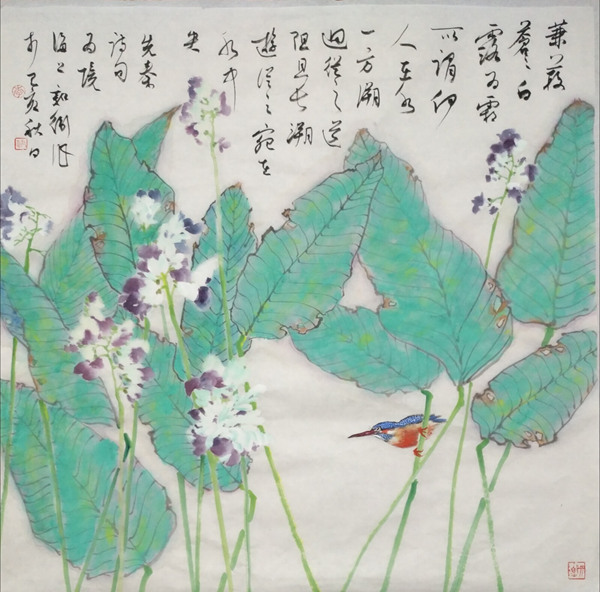 蒹葭
蒼〻白
露為霜
所謂伊
人在水
一方溯
洄從之道
阻且長溯
遊從之宛在
水中
央
先秦
詩句
為境
海上
於己亥秋日